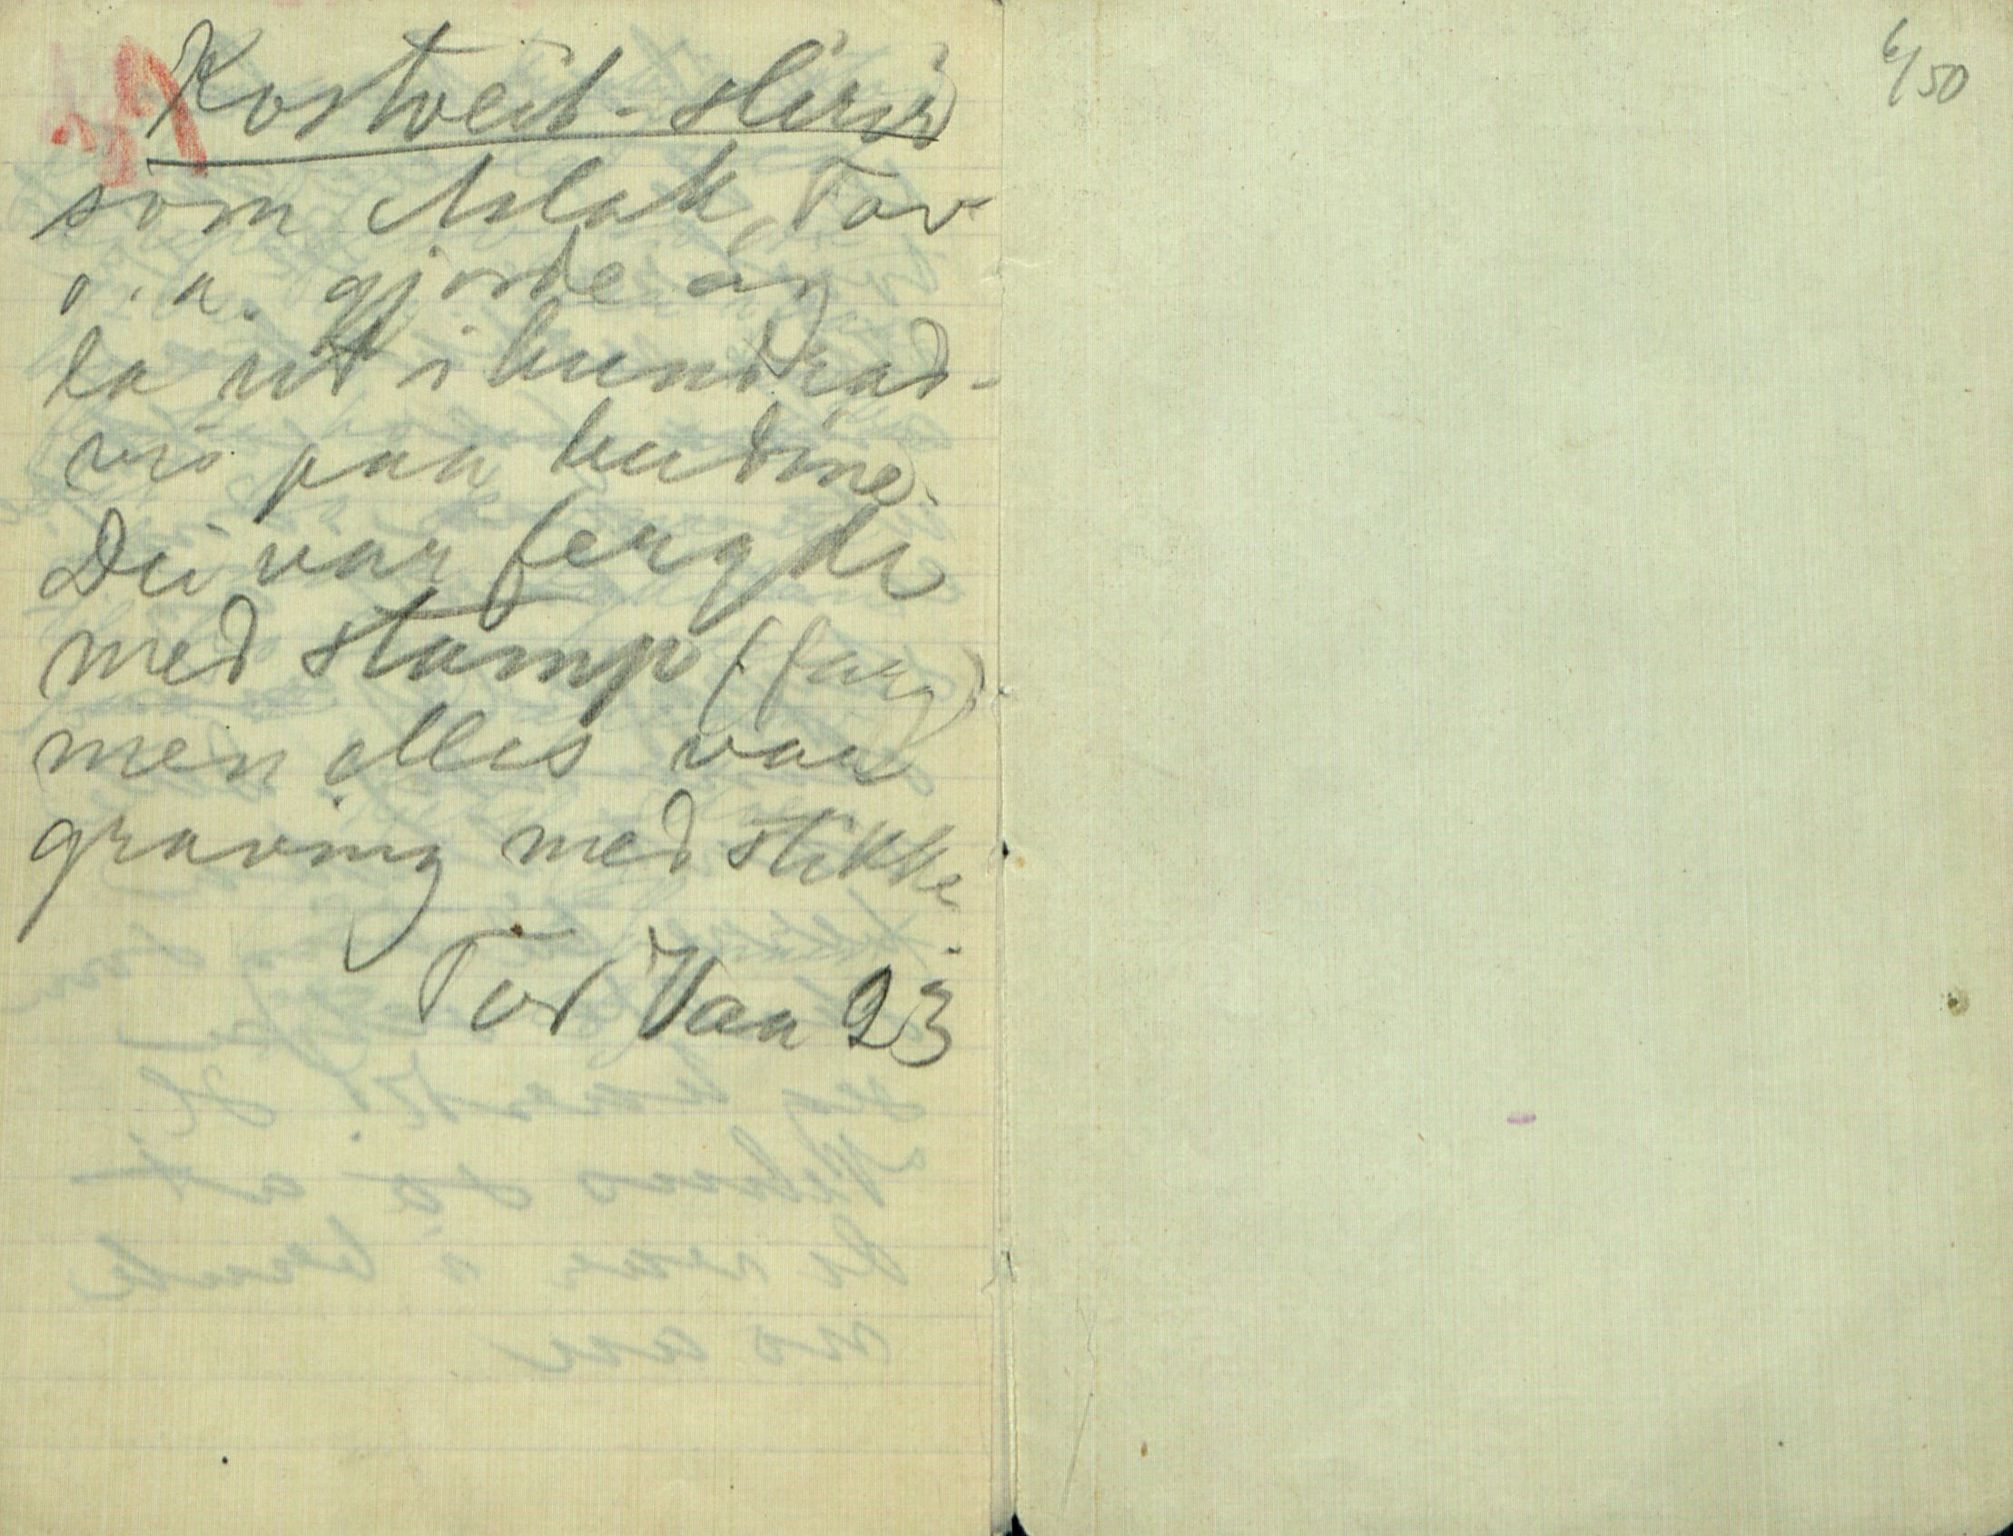 Kostveit-slirir
som Aslak, Tov
o.a. gjorde og
la ut i hundrad-
vis paa budine.
Dei var fergde
med stamp (farg)
men elles var
graving med stikke
Tov Vaa 23
6/50